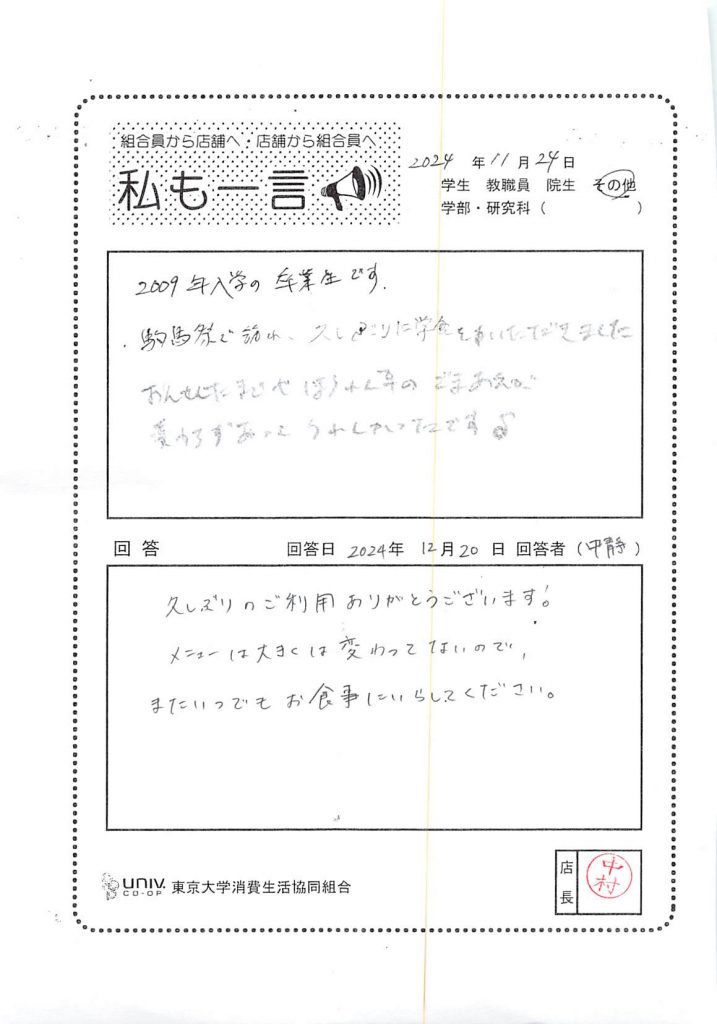 組合員から店舗へ・店舗から組合員へ
私も一言
2024 年 11 月 24 日
学生 教職員 院生 その他
学部・研究科( )
2009年入学の 卒業生です.
・駒馬祭で訪れ、久しぶりに学食をいただきました
おんせんたまごや ほうれん草の ごまあえが
変わらずあって うれしかったです♪
回答 回答日 2024年 12月20 日 回答者(中静)
久しぶりのご利用ありがとうございます!
メニューは大きくは変わってないので,
またいつでもお食事にいらしてください。
UNIV. CO-OP 東京大学消費生活協同組合
店長 中村